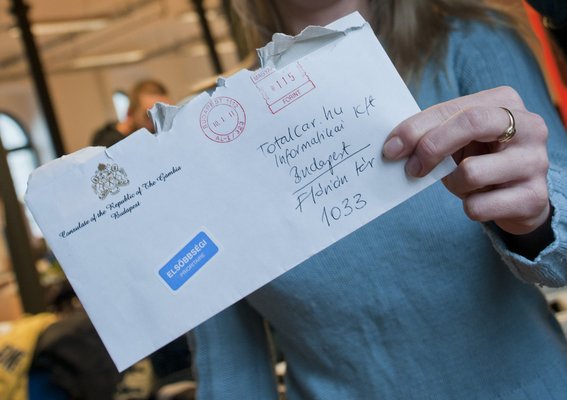 Consulate of the Republic of The Gambia
Budapest
115
FORINT
TotalCar.hu
Informatikai Kft
Budapest
Flórián tér
1033
ELSŐBBSÉGI
PRIORITAIRE